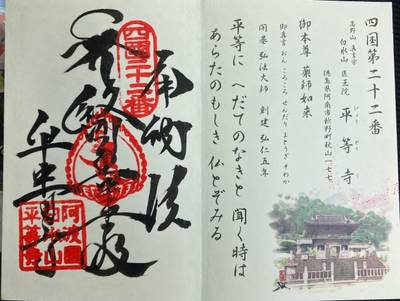 四国第二十二番
高野山 真言宗
白水山 医王院 平等寺
びょう どう じ
徳島県阿南市新野町秋山一七七
御本尊 薬師如来
御真言 おん ころころ せんだり まとうぎ そわか
開基 弘法大師 創建 弘仁五年
平等に へだてのなきと 聞く時は
あらたのもしき 仏とぞみる
四国二十二番
奉納経
平等寺
阿波国